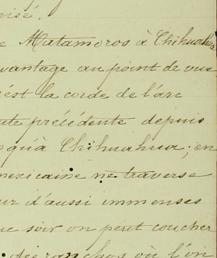 nisé.
e Matamoros à Chihuahua
avantage au point de vue
'est la corde de l'arc
ute précédente depuis
squ'à Chihuahua; en
mexicaine ne traverse
ur d'aussi immenses
ue soir on peut coucher
des ranchos où l'on